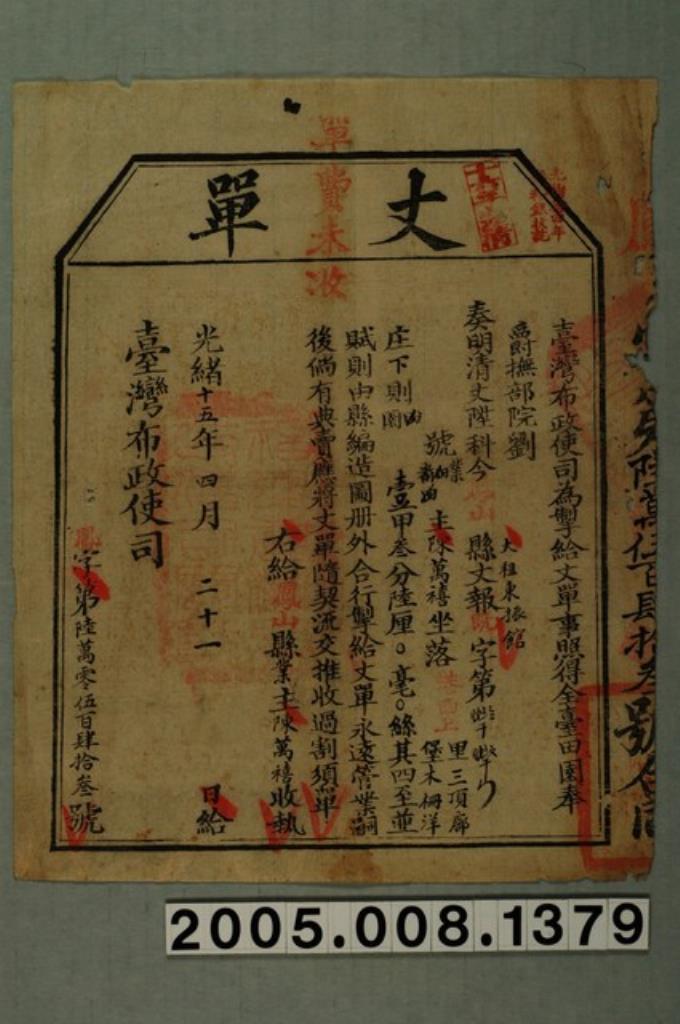 丈單
單費未收
臺灣布政使司為掣給丈單事照得全臺田園奉
爵撫部院劉
奏明清丈陞科今鳳山縣丈報 字第
大租東振館
號業主陳萬禧坐落
里三項廍
堡木柵洋
庄下則田園壹甲叁分陸厘○毫○絲其四至並
賦則由縣編造圖册外合行掣給丈單永遠管業嗣
後倘有典賣應將丈單隨契流交推收過割須單
右給鳳山縣業主陳萬禧收執
光緒十五年四月二十一日給
臺灣布政使司
鳳字第陸萬零伍百肆拾叁號
2005.008.1379